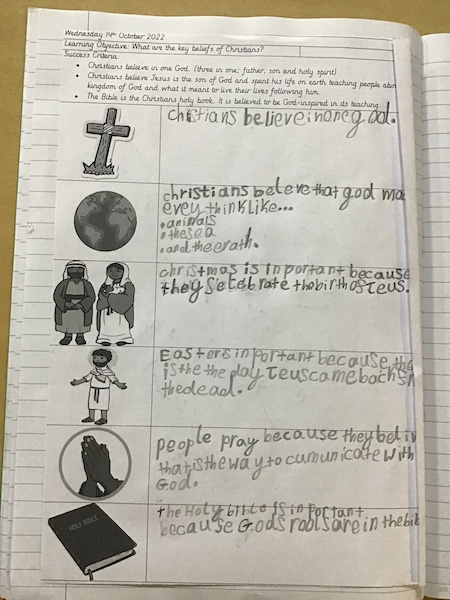 Wednesday 14th October 2022
Learning Objective: What are the key beliefs of Christians?
Success Criteria:
• Christians believe in one God. (three in one; father, son and holy spirit)
• Christians believe Jesus is the son of God and spent his life on earth teaching people abo
kingdom of God and what it meant to live their lives following him.
• The Bible is the Christians holy book. It is believed to be God-inspired in its teaching.
christians believe in one god.
christians beleve that god ma
every think like...
• animals
• the sea
• and the erath.
christmas is inportant because
they selebrate the birth os Teus.
Easter is inportant because the
is the the day Teus came back
the dead.
people pray because they beliv
that is the way to cumunicate with
God.
HOLY BIBLE
the Holy bible is inportant
because Gods rools are in the bib